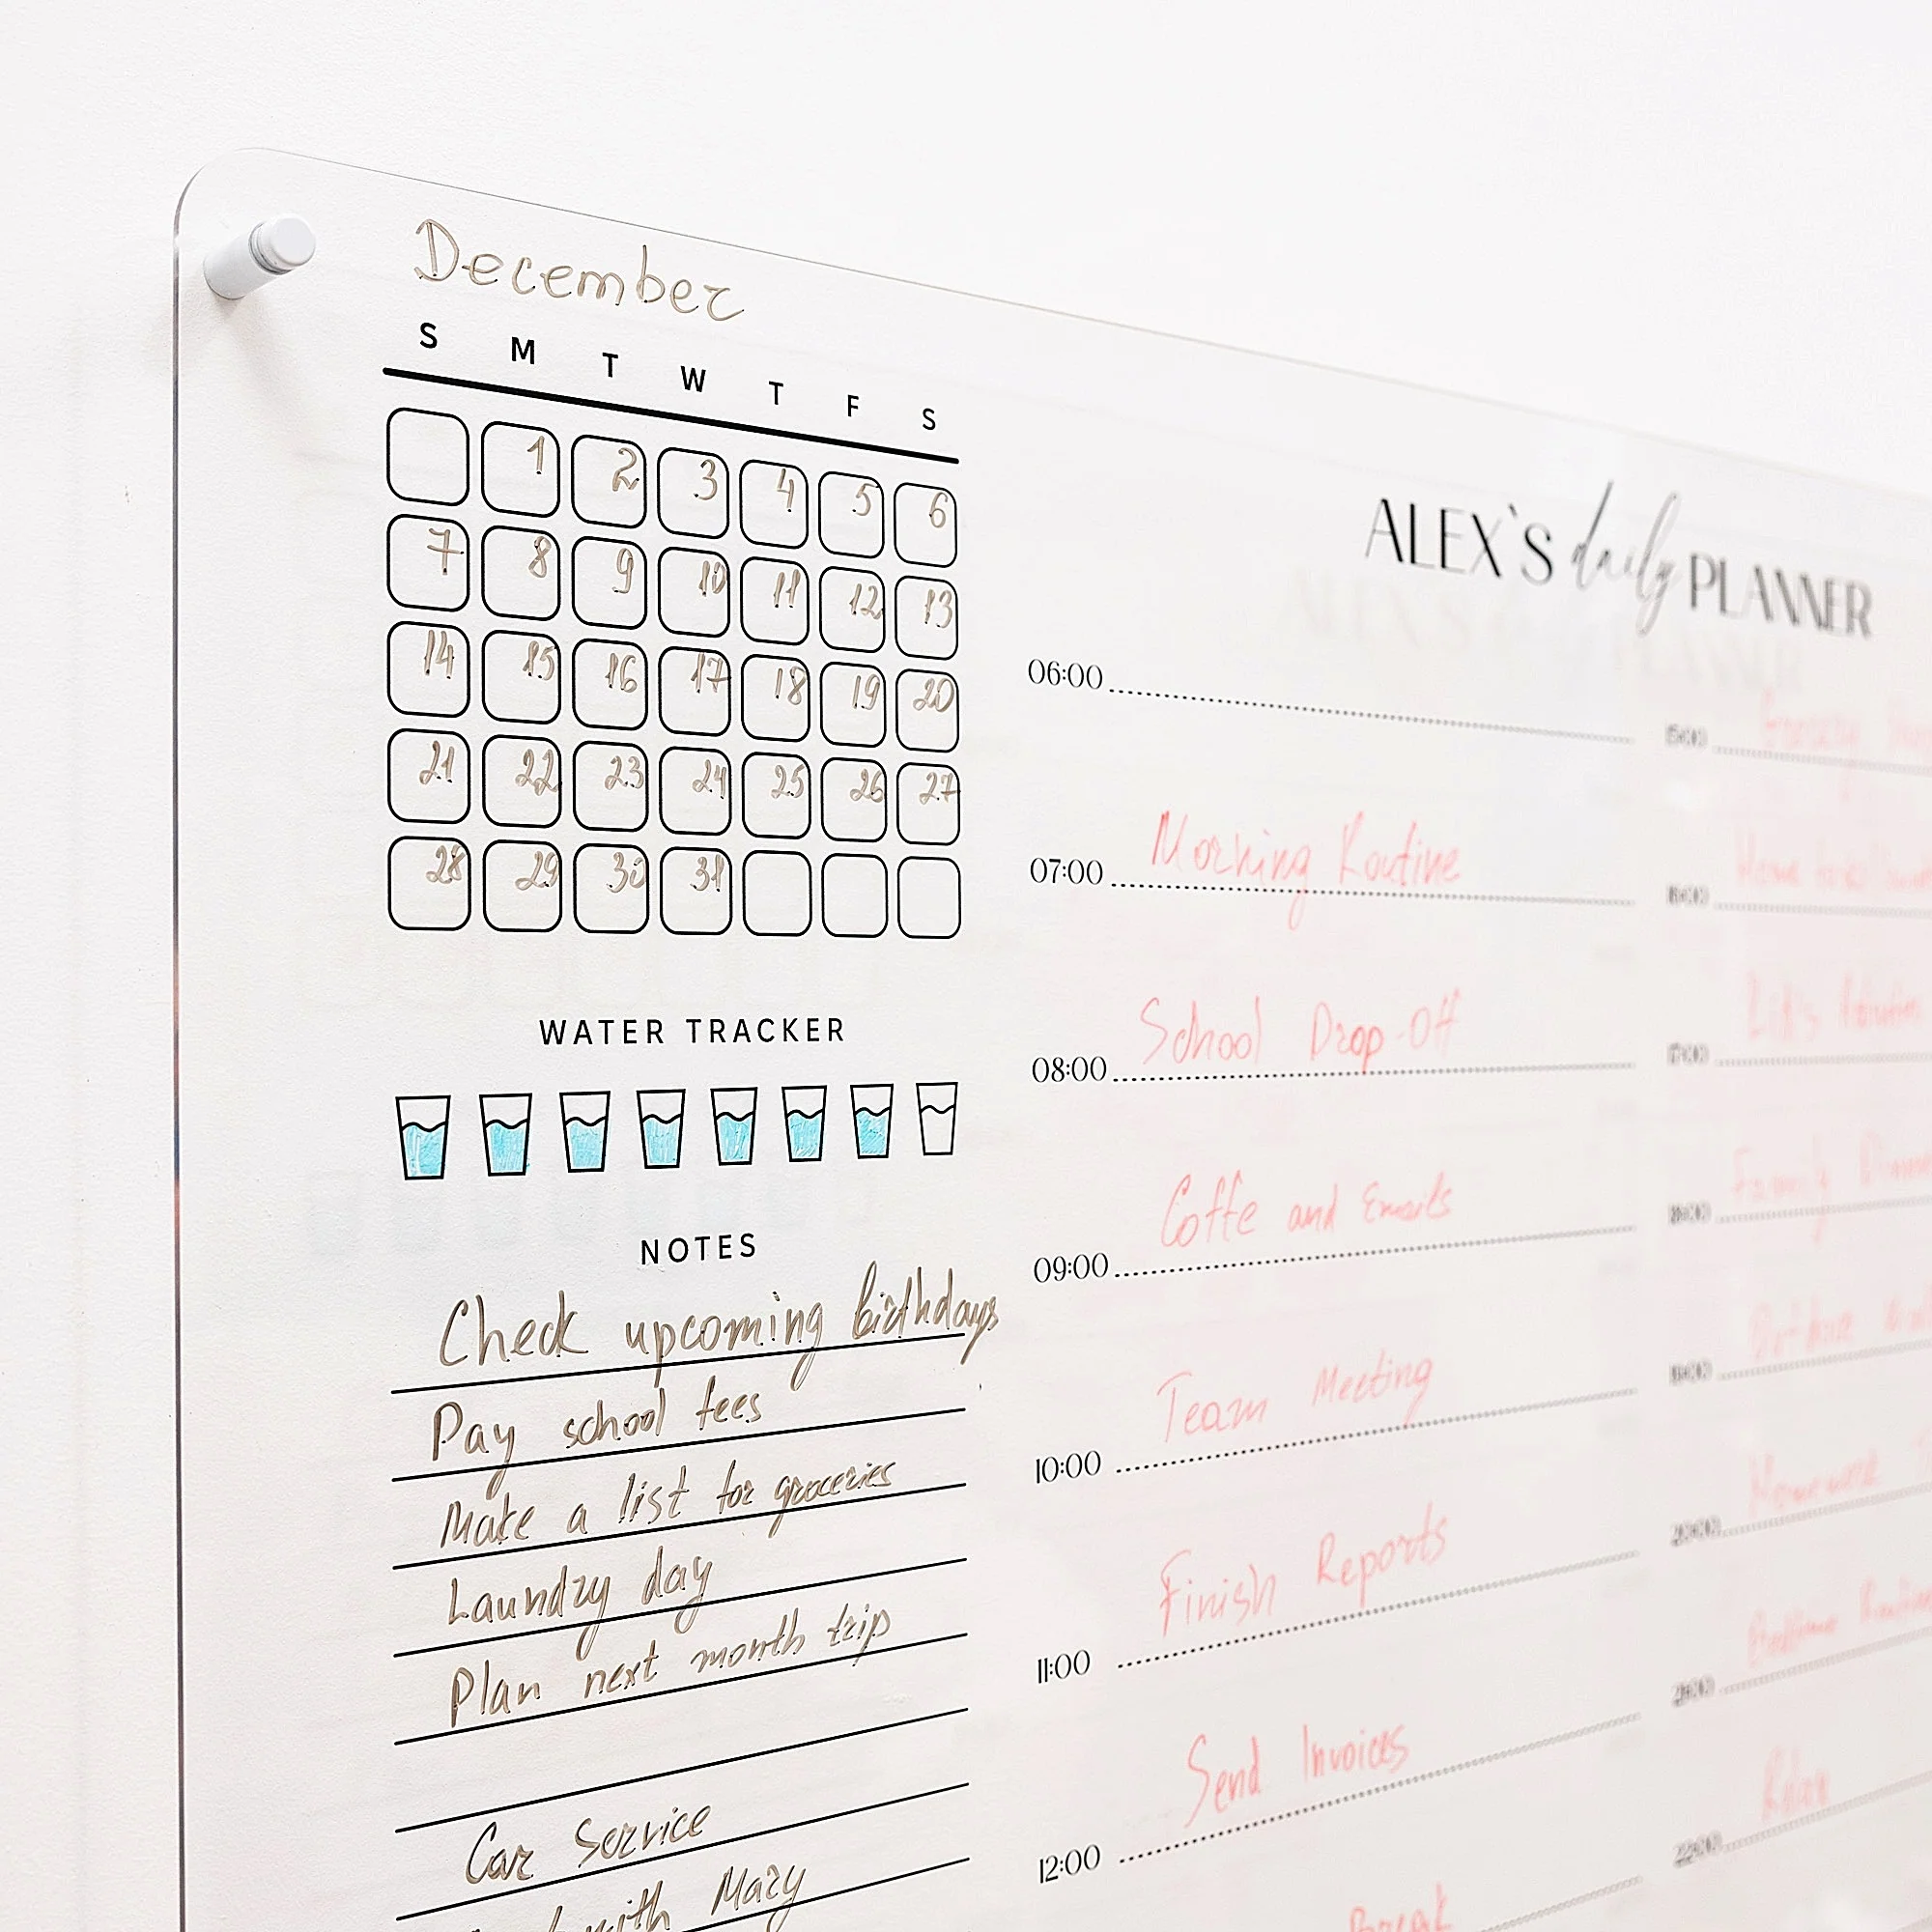 December
S M T W T F S
1 2 3 4 5 6
7 8 9 10 11 12 13
14 15 16 17 18 19 20
21 22 23 24 25 26 27
28 29 30 31
WATER TRACKER
NOTES
Check upcoming birthdays
Pay school fees
Make a list for groceries
Laundry day
Plan next month trip
Car Service
with Mary
ALEX`S daily PLANNER
06:00
07:00 Morning Routine
08:00 School Drop-Off
09:00 Coffe and Emails
10:00 Team Meeting
11:00 Finish Reports
12:00 Send Invoices
Break
15:00 Grocery
16:00
17:00
18:00 Family
19:00
20:00 Homework
21:00 Bedtime Routine
22:00 Relax